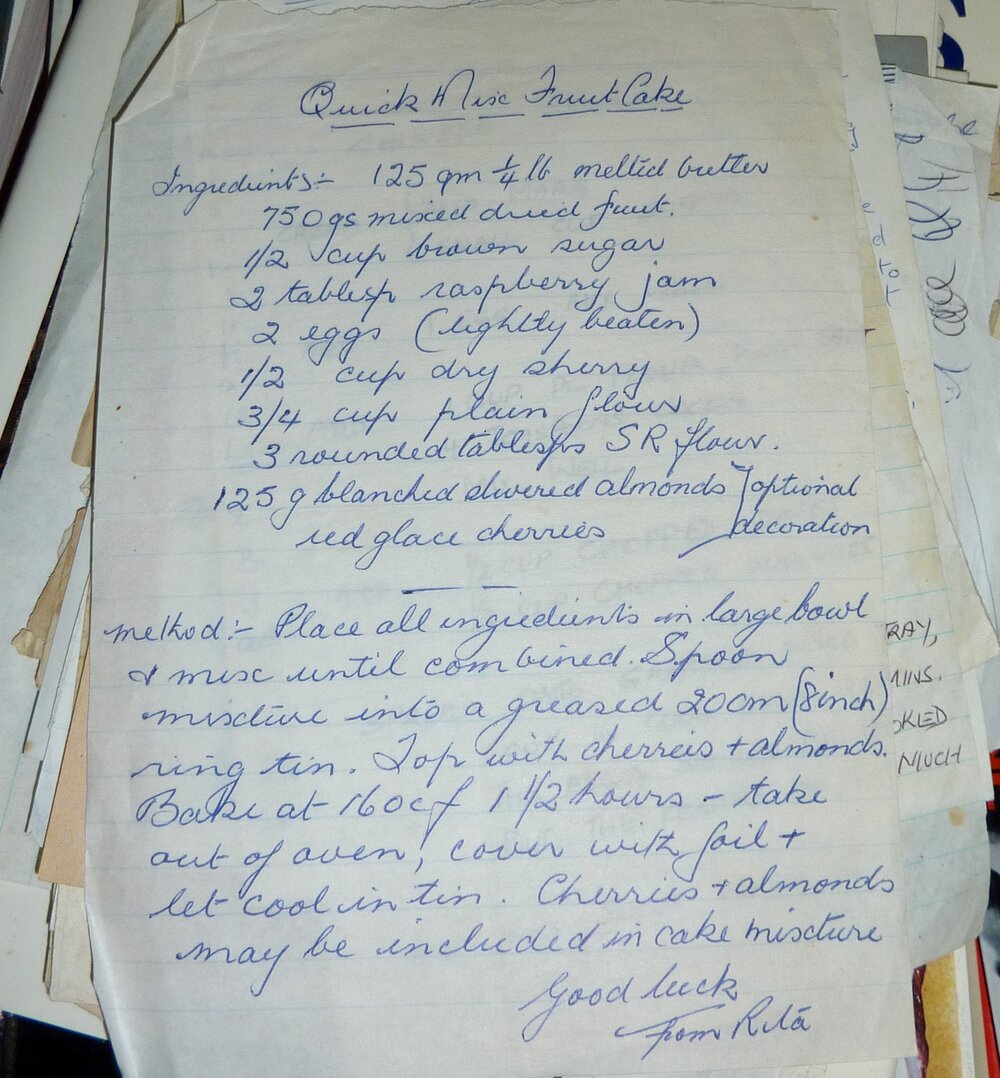 Quick Mix Fruit Cake
Ingredients:- 125 gm 1/4 lb melted butter
750gs mixed dried fruit.
1/2 cup brown sugar
2 tablesp raspberry jam
2 eggs (lightly beaten)
1/2 cup dry sherry
3/4 cup plain flour
3 rounded tablesps SR flour.
125 g blanched slivered almonds } optional
red glace cherries decoration
method:- Place all ingredients in large bowl
& mix until combined. Spoon
mixture into a greased 20cm (8inch)
ring tin. Top with cherreis + almonds.
Bake at 160c f 1 1/2 hours - take
out of oven, cover with foil +
let cool in tin. Cherries + almonds
may be included in cake mixture
Good luck
from Rita
RAY,
MINS.
KLED
MUCH